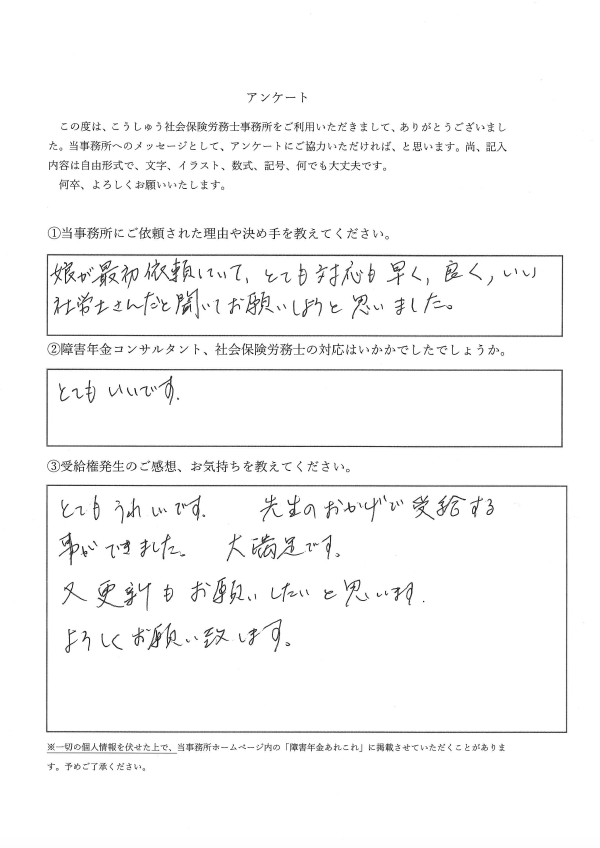 アンケート
この度は、こうしゅう社会保険労務士事務所をご利用いただきまして、ありがとうございまし
た。当事務所へのメッセージとして、アンケートにご協力いただければ、と思います。尚、記入
内容は自由形式で、文字、イラスト、数式、記号、何でも大丈夫です。
何卒、よろしくお願いいたします。
①当事務所にご依頼された理由や決め手を教えてください。
娘が最初依頼していて、とても対応も早く,良く,いい
社労士さんだと聞いてお願いしようと思いました。
②障害年金コンサルタント、社会保険労務士の対応はいかかでしたでしょうか。
とてもいいです.
③受給権発生のご感想、お気持ちを教えてください。
とてもうれしいです. 先生のおかげで受給する
事ができました。 大満足です。
又更新もお願いしたいと思います.
よろしくお願い致します。
※一切の個人情報を伏せた上で、当事務所ホームページ内の「障害年金あれこれ」に掲載させていただくことがありま
す。予めご了承ください。